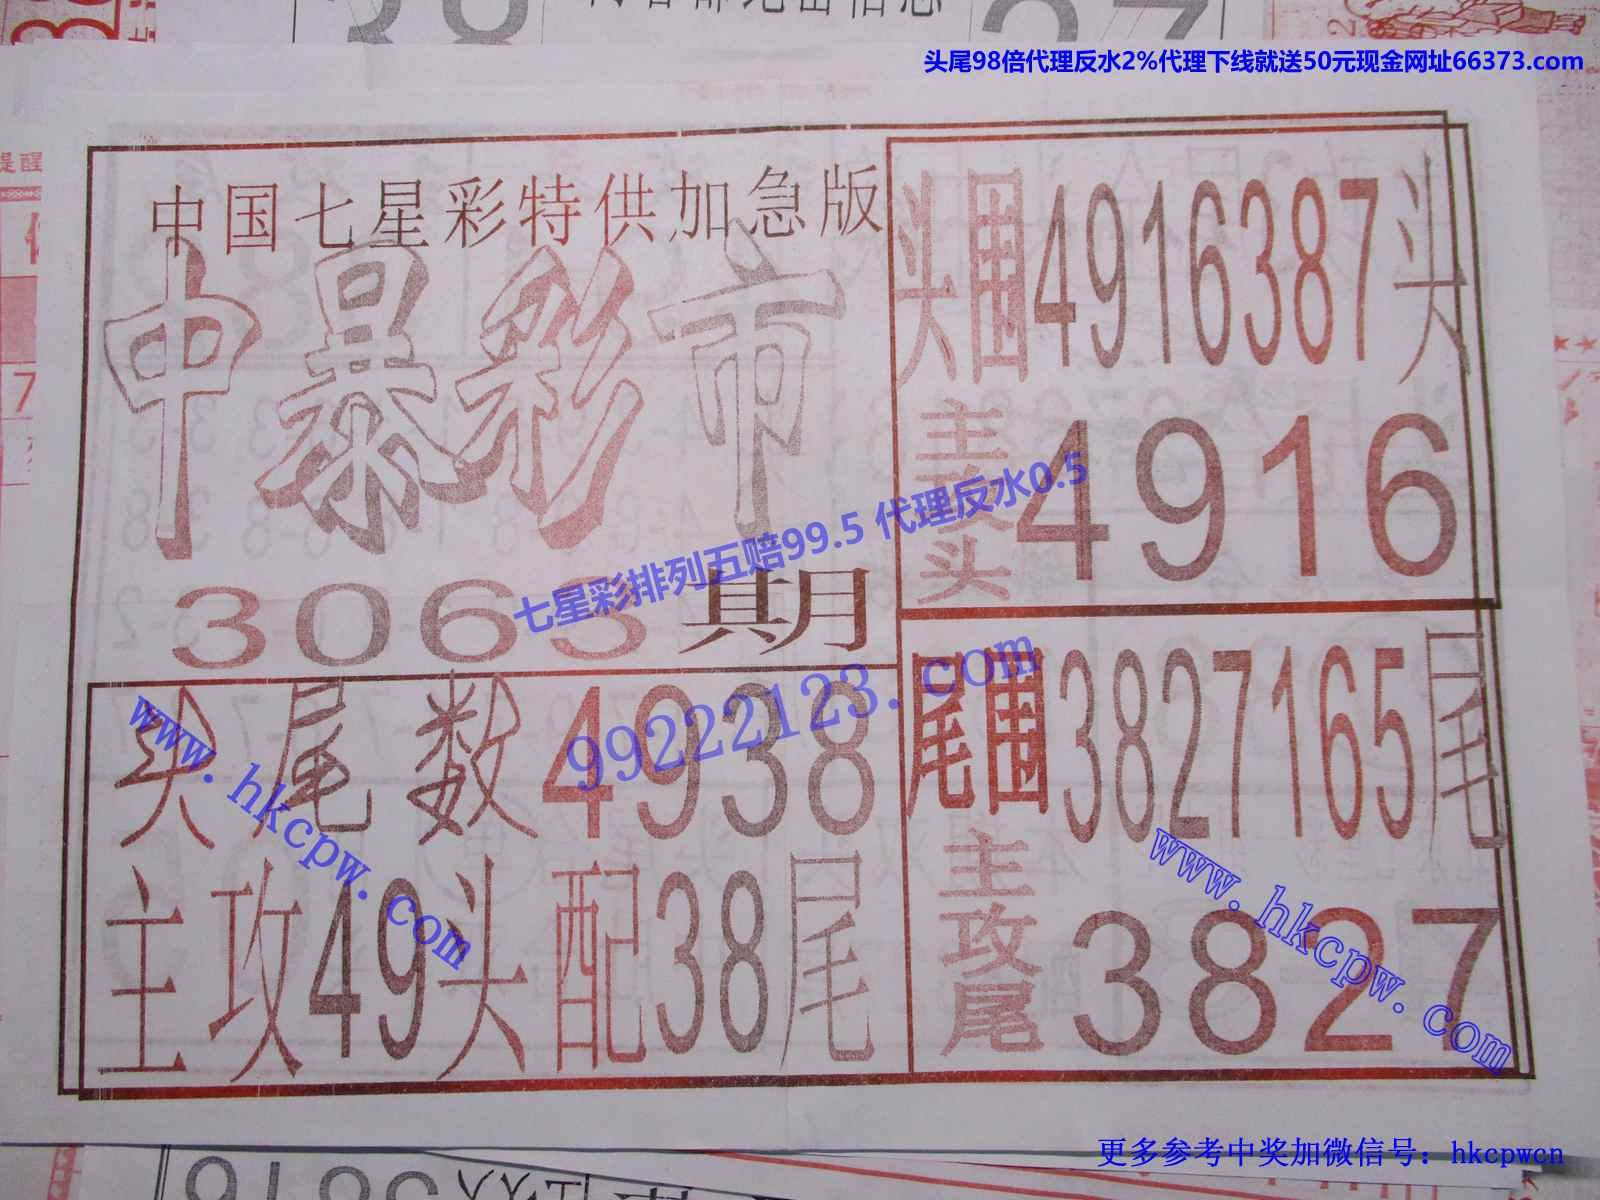 头尾98倍代理反水2%代理下线就送50元现金网址66373.com
提醒
中国七星彩特供加急版
中暴彩市
3063期
头围4916387头
主攻头4916
七星彩排列五赔99.5 代理反水0.5
99222123.com
头尾数4938
主攻49头配38尾
www.hkcpw.com
尾围3827165尾
主攻尾3827
www.hkcpw.com
更多参考中奖加微信号：hkcpwcn